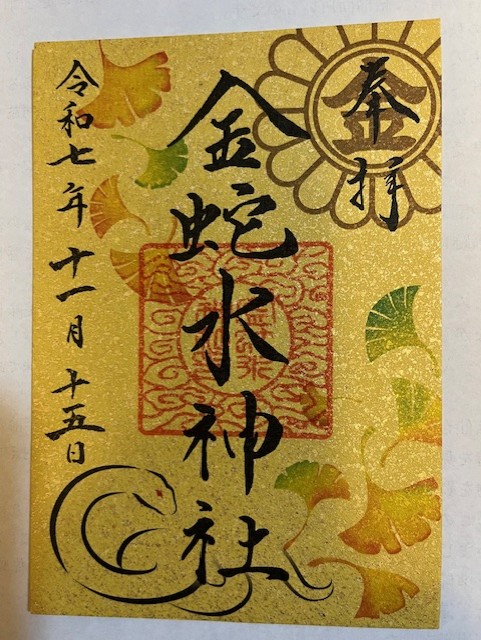 奉拝
金
金蛇水神社
令和七年十一月十五日